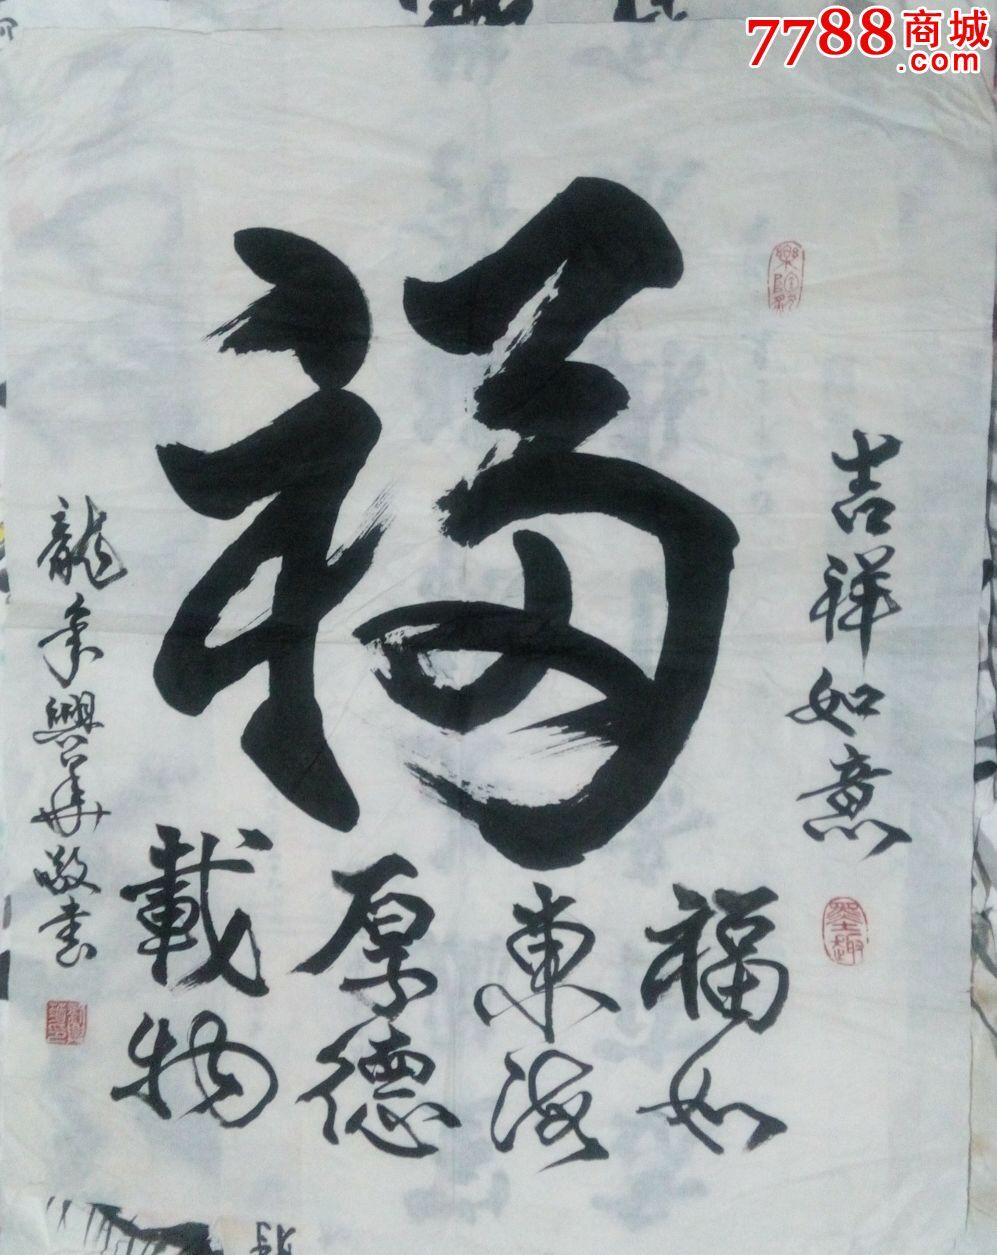 7788商城
.com
福
吉祥如意
福如
東海
厚德
載物
龍年興華敬書
墨趣